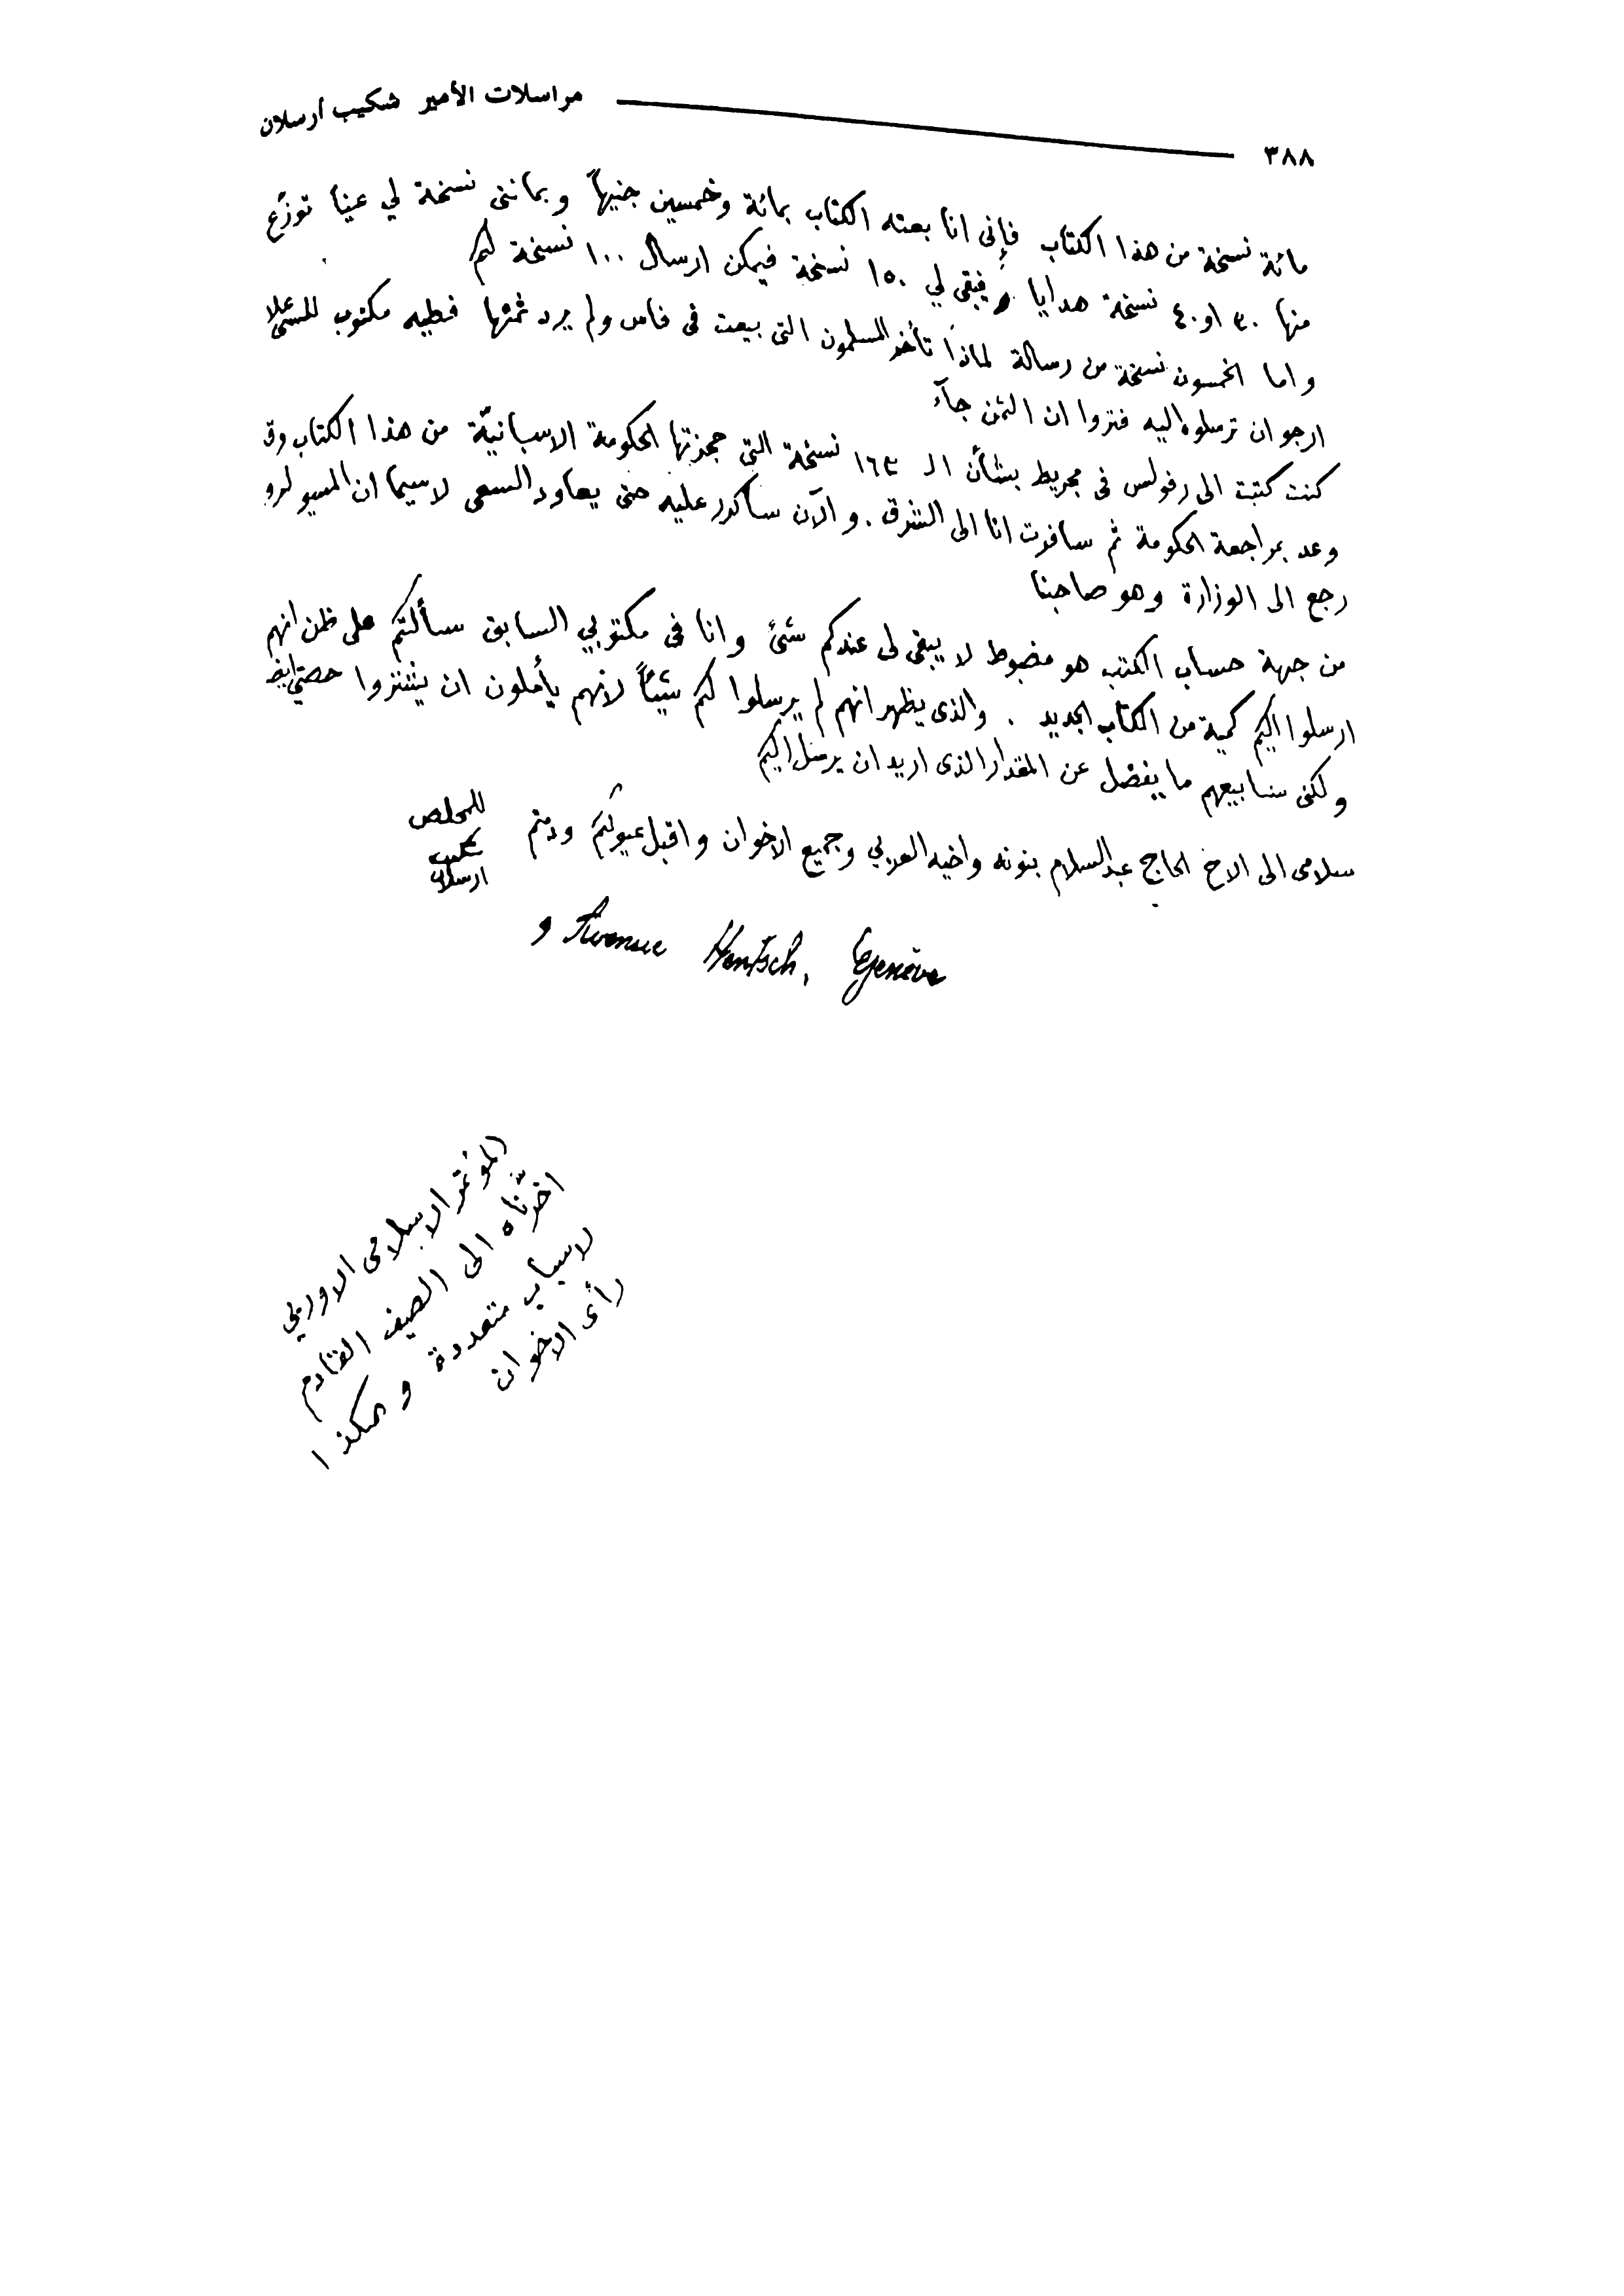 ٣٨٨ مراسلات الأمير شكيب أرسلان
مائة نسخة من هذا الكتاب فإنى انا بعته الكتاب بمائة وخمسين جنيهاً وبمائتى نسخة لي عيناً توزّع
منها ٣٠ او ٤٠ نسخة هدايا فيبقى لي ١٥٠ نسخة فيمكن ارسال ١٠٠ نسخة لكم
واما الخمسون نسخة من رسالة لماذا تأخر المسلمون التى بيعت فى فاس ولم يرد ثمنها فطيه مكتوب
ارجو ان ترسلوه اليه فتروا ان الثمن جآء
كنت كتبت الى رفولس فى مجريط بشأن الـ ١٦٣ نسخة التى حجزتها الحكومة الاسبانيّة من هذا الكتاب وقد
وعد بمراجعة الحكومة ثم سافرت انا الى الشرق . والآن سأكرر عليه حتى يعاود السعى لاسيما ان المسيو لرو
رجع الى الوزارة وهو صاحبنا
من جهة حساب الكتب هو مضبوط لا يبقى لى عندكم شئ وانا فى مكتوبي السابق سألتكم على ظن انهم
ارسلوا اليكم كمية من الكتاب الجديد . والذى يظهر انهم لم يرسلوا لكم شيئاً لأنهم يأملون ان يشتروا حصتي ايضا
ولكنى سابيعهم ما يفضل عن المقدار الذى اريد ان يرسل اليكم
سلامى الى الاخ الحاج عبد السلام بنونه واخيه العربي وجميع الاخوان واقبل عيونكم ودمتم
للمخلص
شكيب
ارسلان
9 Avenue Hentsch, Genève
المؤتمر الاسلامى الاوربي
اخرّناه الى الصيف القادم
لاسباب متعددة وهكذا
رأى الاخوان